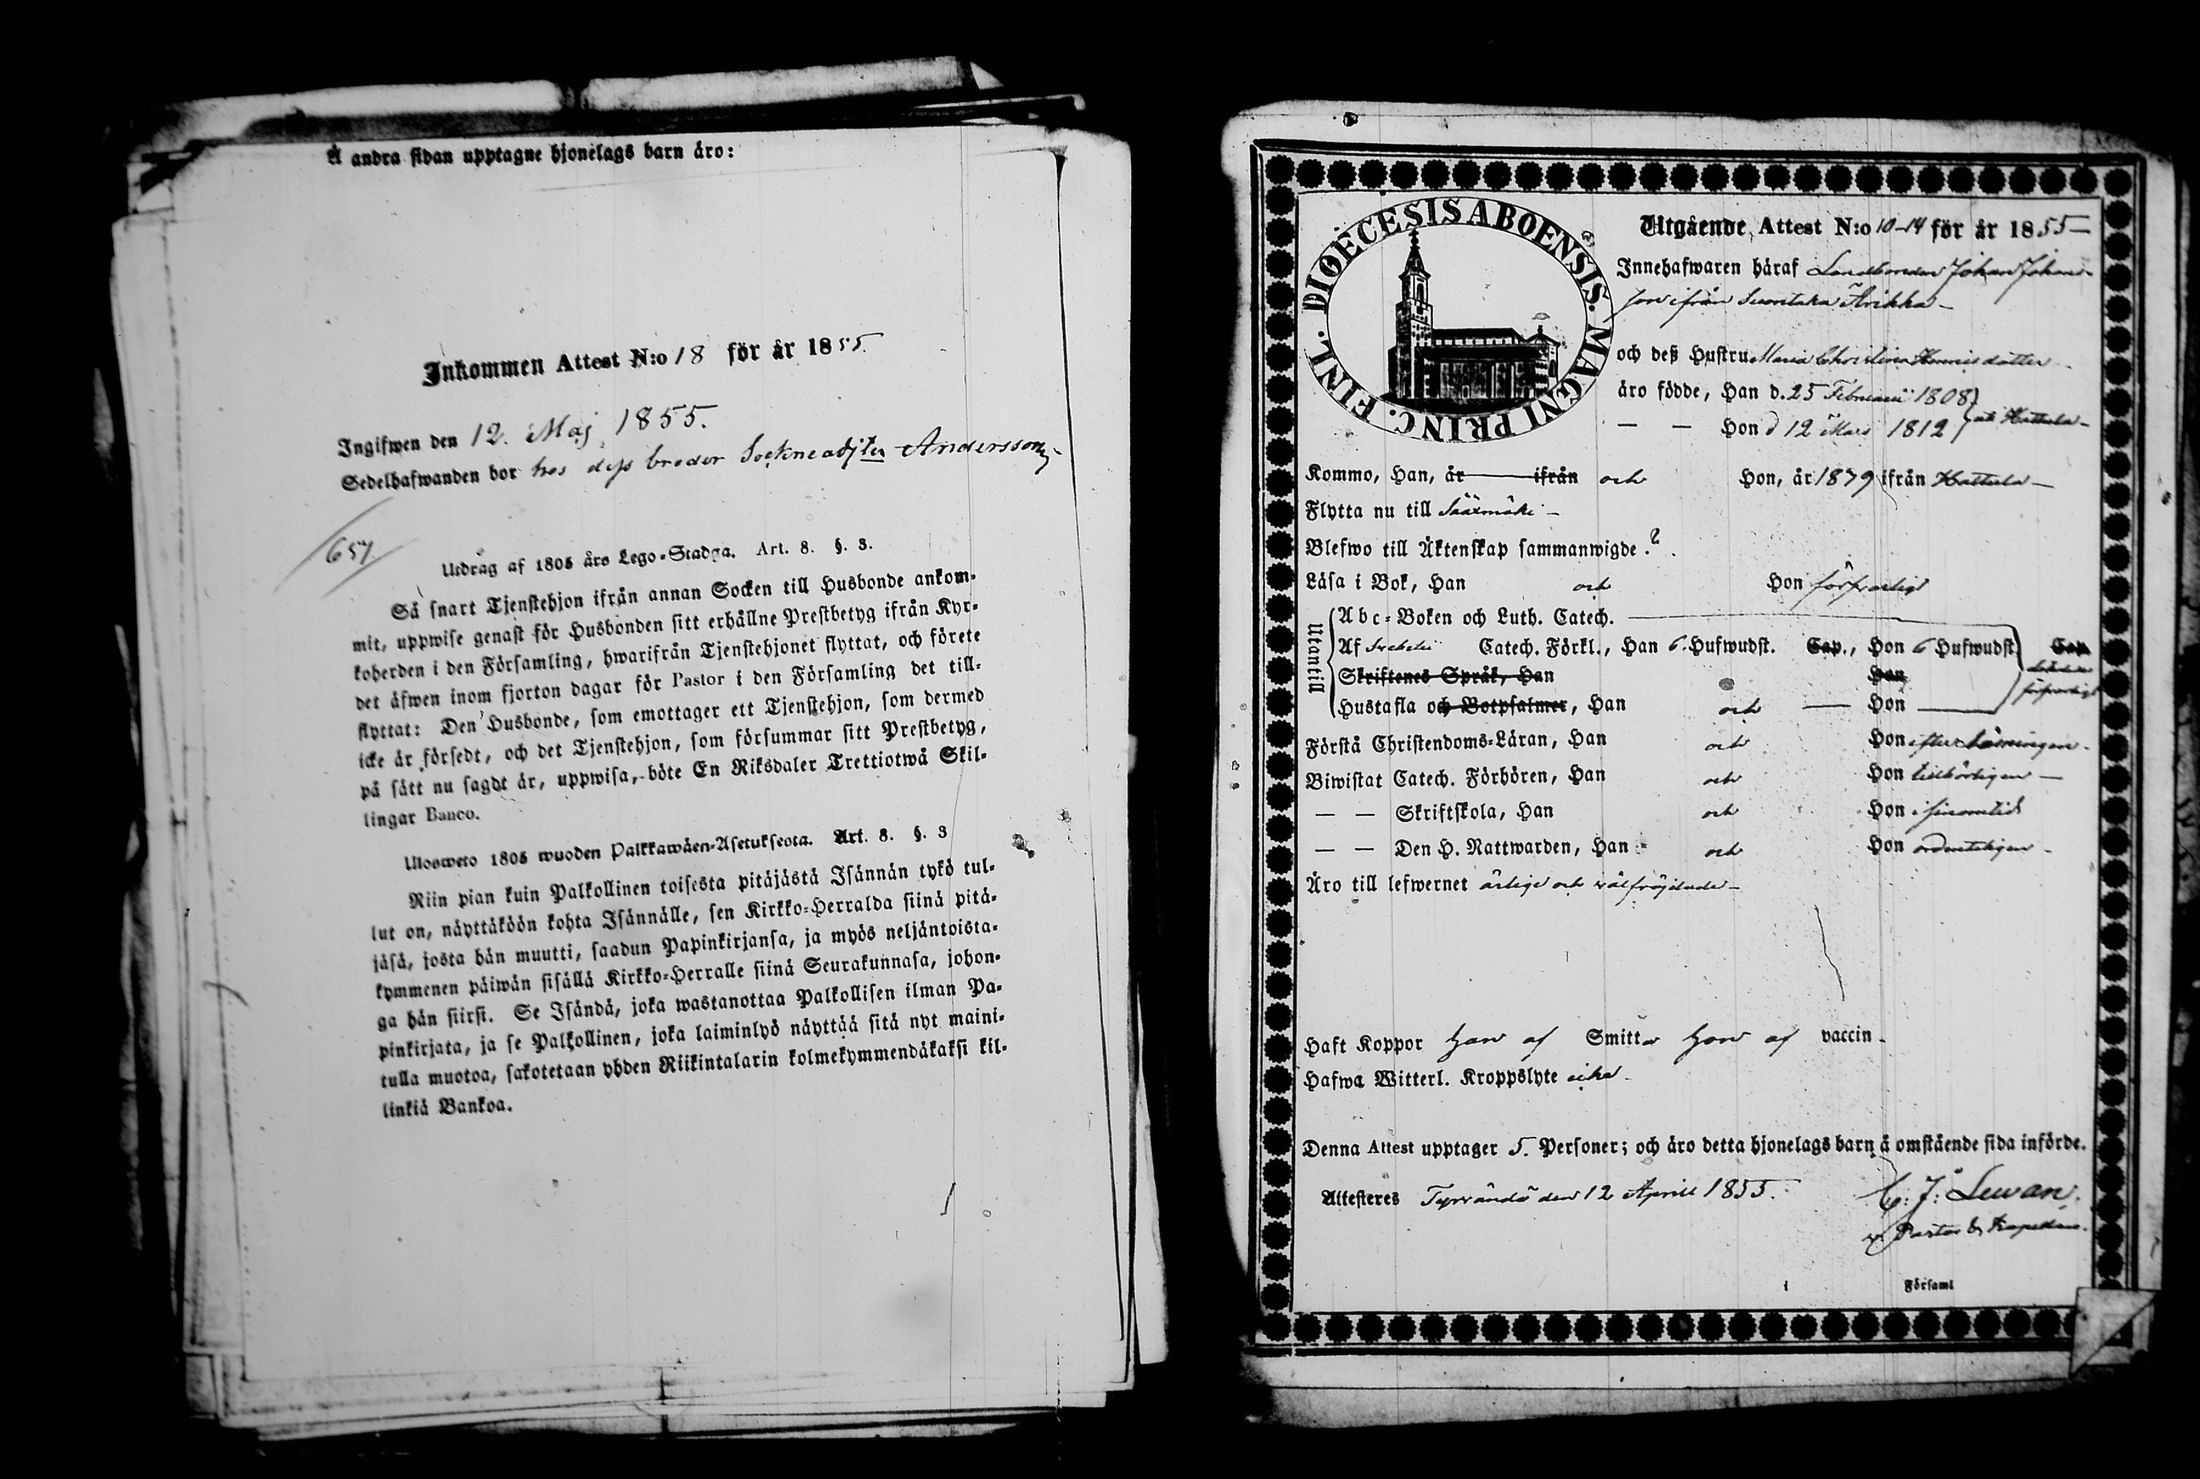 Å andra sidan upptagne hjonelags barn äro:
Inkommen Attest N:o 18 för år 1855.
Ingifwen den 12. Maj 1855.
Sedelhafwanden bor hos dess broder Andersson
657
Utdrag af 1805 års Lego-Stadga. Art. 8. §. 3.
Så snart Tjenstehjon ifrån annan Socken till Husbonde ankom-
mit, uppwise genast för Husbonden sitt erhållne Prestbetyg ifrån Kyr-
koherden i den Församling, hwarifrån Tjenstehjonet flyttat, och förete
det äfwen inom fjorton dagar för Pastor i den Församling det till-
flyttat: Den Husbonde, som emottager ett Tjenstehjon, som dermed
icke är försedt, och det Tjenstehjon, som försummar sitt Prestbetyg,
på sätt nu sagdt är, uppwisa, böte En Riksdaler Trettiotwå Skil-
lingar Banco.
Ulosweto 1805 wuoden Palkkawäen-Asetuksesta. Art. 8. §. 3
Niin pian kuin Palkollinen toisesta pitäjästä Isännän tykö tul-
lut on, näyttäköön kohta Isännälle, sen Kirkko-Herralda siinä pitä-
jäsä, josta hän muutti, saadun Papinkirjansa, ja myös neljäntoista-
kymmenen päiwän sisällä Kirkko-Herralle siinä Seurakunnasa, johon-
ga hän siirsi. Se Isändä, joka wastanottaa Palkollisen ilman Pa-
pinkirjata, ja se Palkollinen, joka laiminlyö näyttää sitä nyt maini-
tulla muotoa, sakotetaan yhden Riikintalarin kolmekymmendäkaksi kil-
linkiä Bankoa.
DIOECESIS ABOENSIS. MAGNI PRINC. FINL.
Utgående Attest N:o 10-14 för år 1855
Innehafwaren häraf Landbonden Johan Johans-
son ifrån Arikka
och deß Hustru Maria Christina Henricsdotter
äro födde, Han d. 25 Februarii 1808
— — Hon d 12 Mars 1812 uti Hattula
Kommo, Han, år ifrån och Hon, år 1879 ifrån Hattula
Flytta nu till Sääxmäki
Blefwo till Äktenskap sammanwigde ?
Läsa i Bok, Han och Hon försvarligt
Utantill
Abc-Boken och Luth. Catech.
Af Svebelii Catech. Förkl., Han 6. Hufwudst. Cap., Hon 6 Hufwudst. Cap.
Skriftenes Språk, Han Hon försvarligt
Hustafla och Botpsalmer, Han och Hon
Förstå Christendoms-Läran, Han och Hon efter
Biwistat Catech. Förhören, Han och Hon tillbörligen
— — Skriftskola, Han och Hon i sinom tid
— — Den H. Nattwarden, Han och Hon ordenteligen
Äro till lefwernet ärlige och wälfrägdade
Haft Koppor Han af Smitta Hon af vaccin
Hafwa Witterl. Kroppslyte icke
Denna Attest upptager 5. Personer; och äro detta hjonelags barn å omstående sida införde.
Attesteres Tyrwändö den 12 Aprill 1855.
C: J: Lewan.
v. Pastor & Kapellan.
i Församl